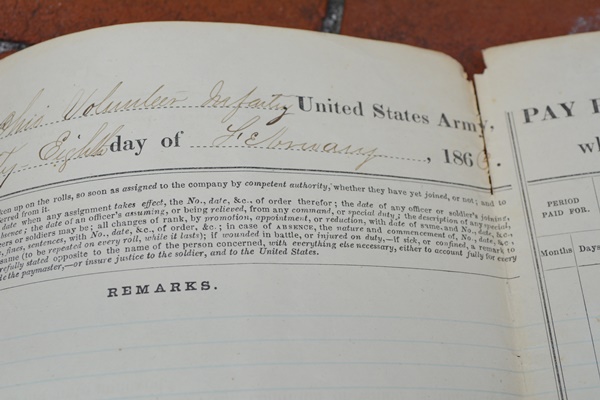 Ohio Volunteer Infantry United States Army,
ty Eighth day of February, 1866.
ken up on the rolls, so soon as assigned to the company by competent authority, whether they have yet joined, or not; and to
ferred from it.
date when any assignment takes effect, the No., date, &c., of order therefor; the date of any officer or soldier's joining,
hence; the date of an officer's assuming, or being relieved, from any command, or special duty; the description of any special,
ers or soldiers may be; all changes of rank, by promotion, appointment, or reduction, with date of same, and No., date, &c.,
fines, sentences, with No., date, &c., of order, &c.; in case of ABSENCE, the nature and commencement of, No., date, &c.,
same (to be repeated on every roll, while it lasts); if wounded in battle, or injured on duty,—if sick, or confined, a remark to
refully stated opposite to the name of the person concerned, with everything else necessary, either to account fully for every
the paymaster,—or insure justice to the soldier, and to the United States.
REMARKS.
PAY
PERIOD
PAID FOR.
Months Days